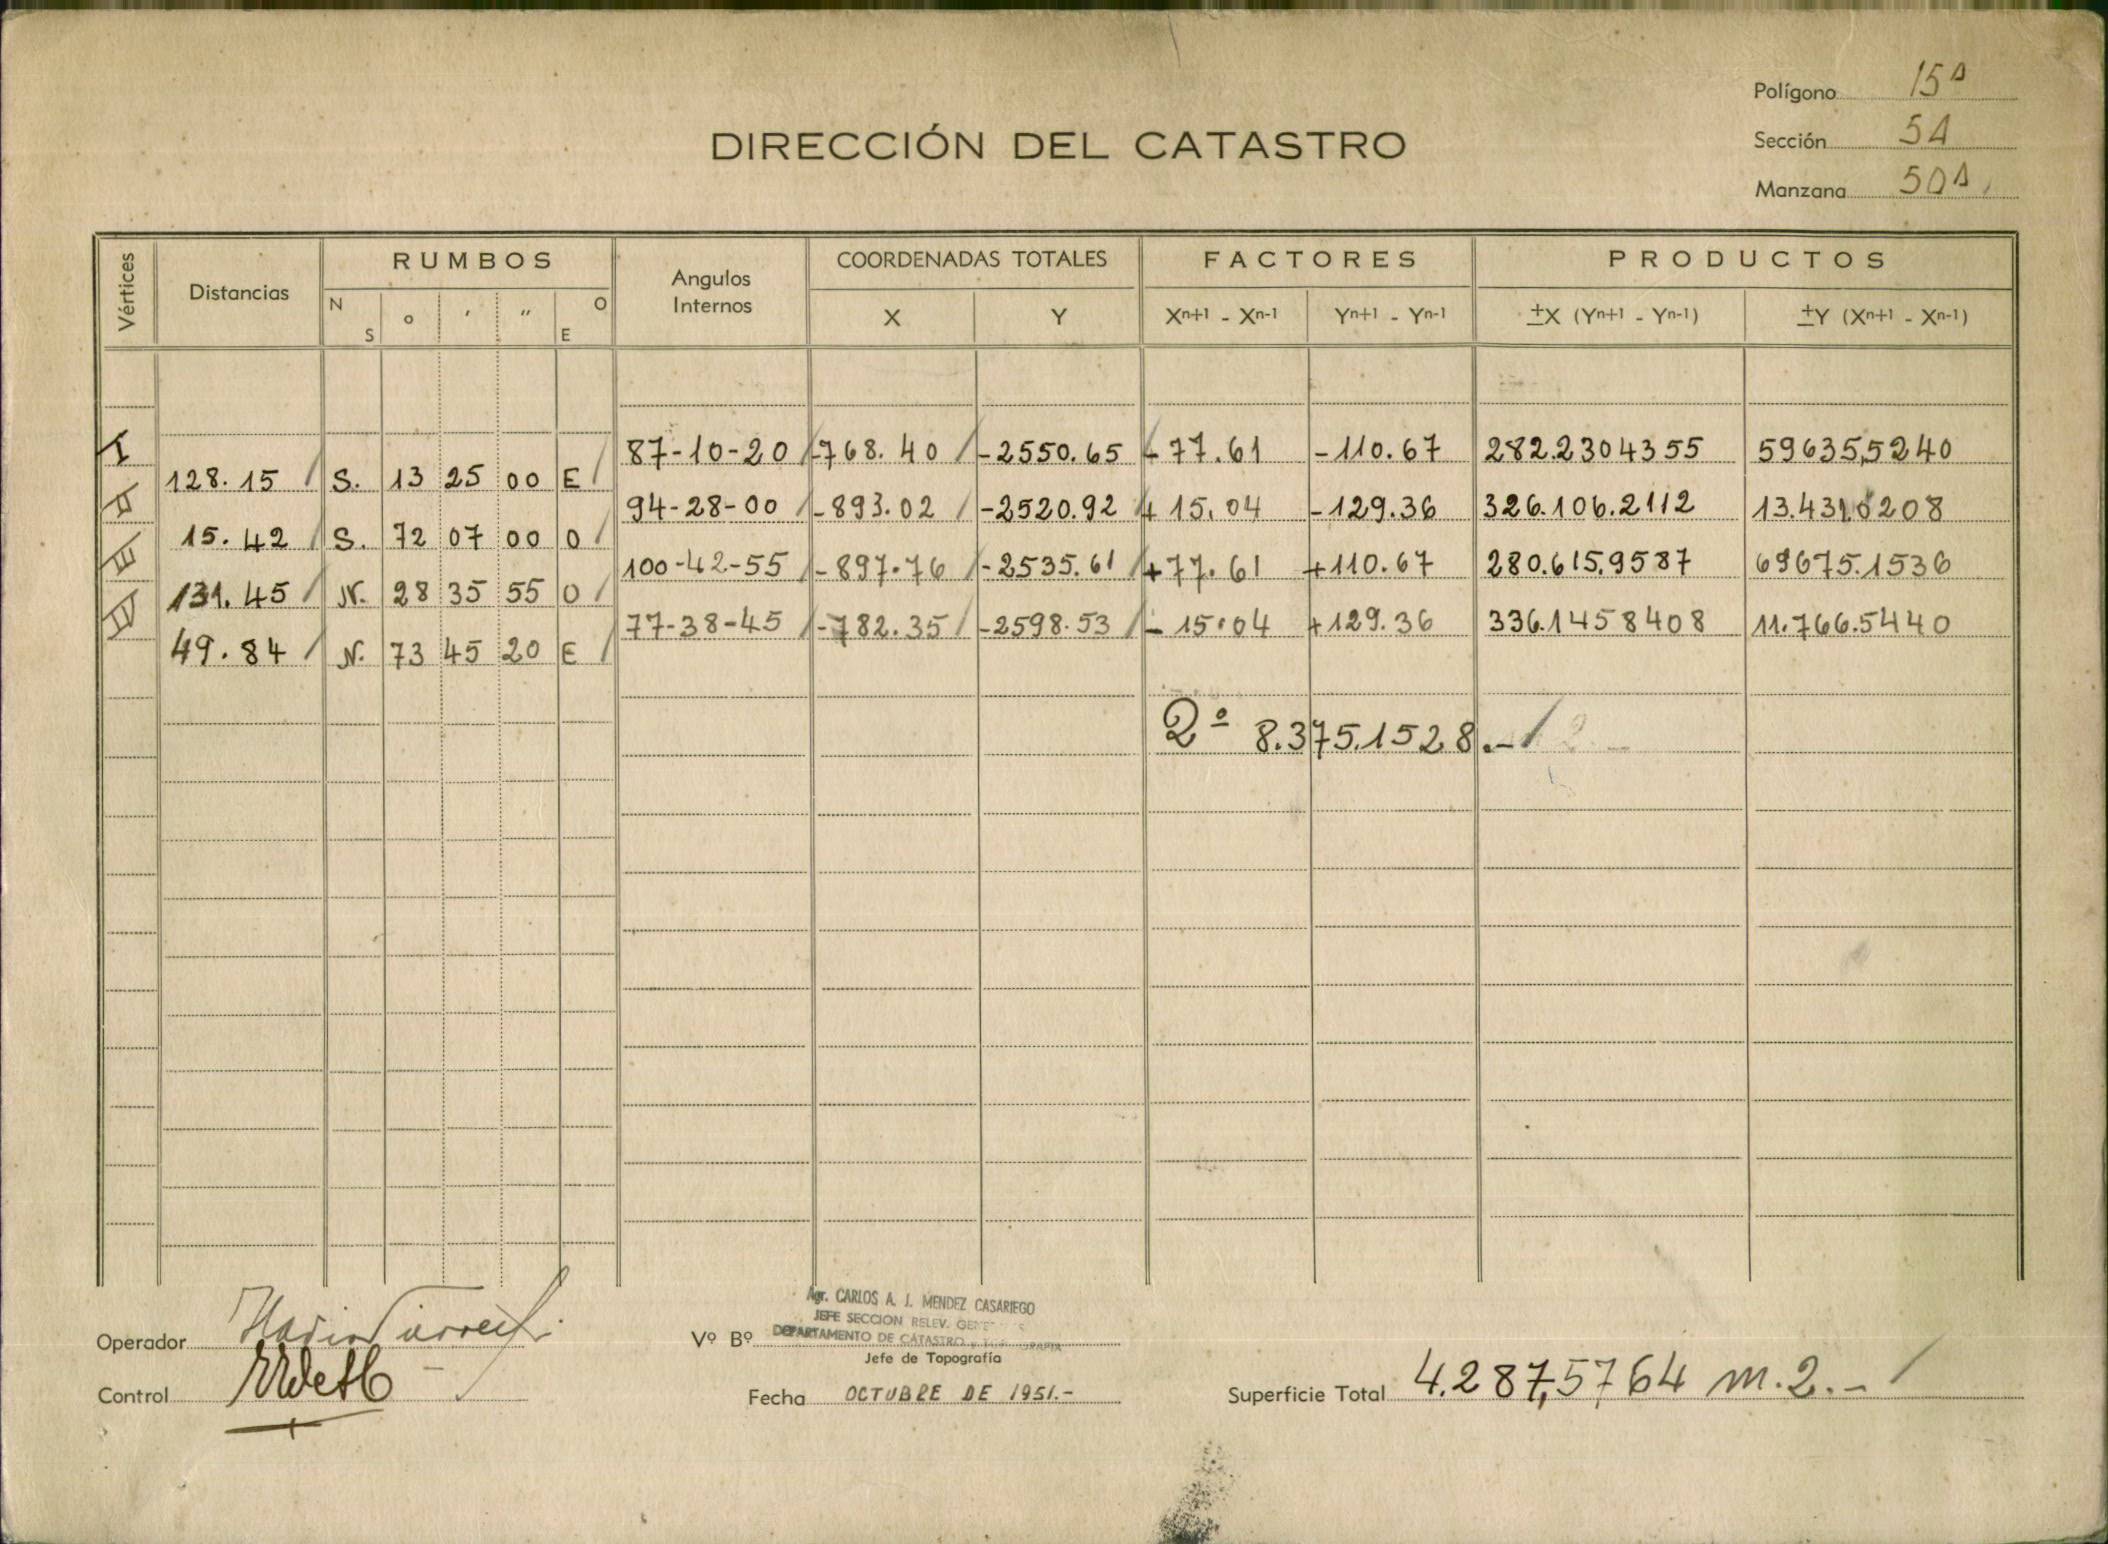 Polígono 15ᴬ
Sección 5A
Manzana 50ᴬ
DIRECCIÓN DEL CATASTRO
Vértices Distancias RUMBOS Angulos Internos COORDENADAS TOTALES FACTORES PRODUCTOS
N S o ′ ″ O E X Y Xn+1 - Xn-1 Yn+1 - Yn-1 ±X (Yn+1 - Yn-1) ±Y (Xn+1 - Xn-1)
I 87-10-20 -768.40 -2550.65 -77.61 -110.67 282.2304355 59635,5240
128.15 S. 13 25 00 E
II 94-28-00 -893.02 -2520.92 + 15.04 -129.36 326.106.2112
15.42 S. 72 07 00 O
III 100-42-55 -897.76 -2535.61 +77.61 +110.67 280.615,9587 69675.1536
131.45 N. 28 35 55 O
IV 77-38-45 -782.35 -2598.53 - 15.04 +129.36 336.1458408 11.766.5440
49.84 N. 73 45 20 E
2º 8.375.1528.-
Agr. CARLOS A. J. MENDEZ CASARIEGO
JEFE SECCION RELEV.
DEPARTAMENTO DE CATASTRO
Operador Vº Bº
Jefe de Topografía
Control Fecha OCTUBRE DE 1951.- Superficie Total 4.287,5764 m.2.-